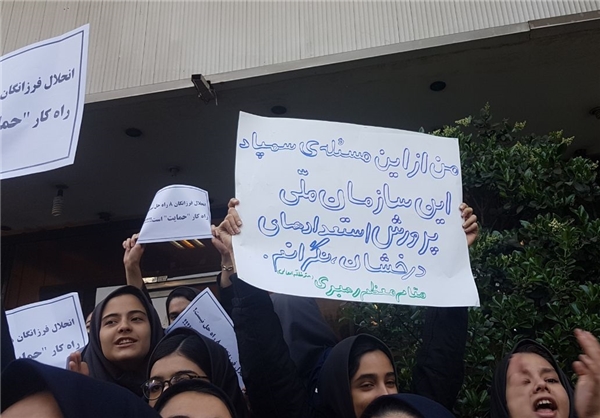 انحلال فرزانگان
راه کار "حما
انحلال فرزانگان ۸ راه حل
راه کار "حمایت" است!!!
من از این مسئله‌ی سمپاد
این سازمان ملّی
پرورش استعدادهای
درخشان، نگرانم.
مقام معظم رهبری
انحلال فرزانگان
راه کار "حمای
راه حل نیست
"حمایت" است!!!